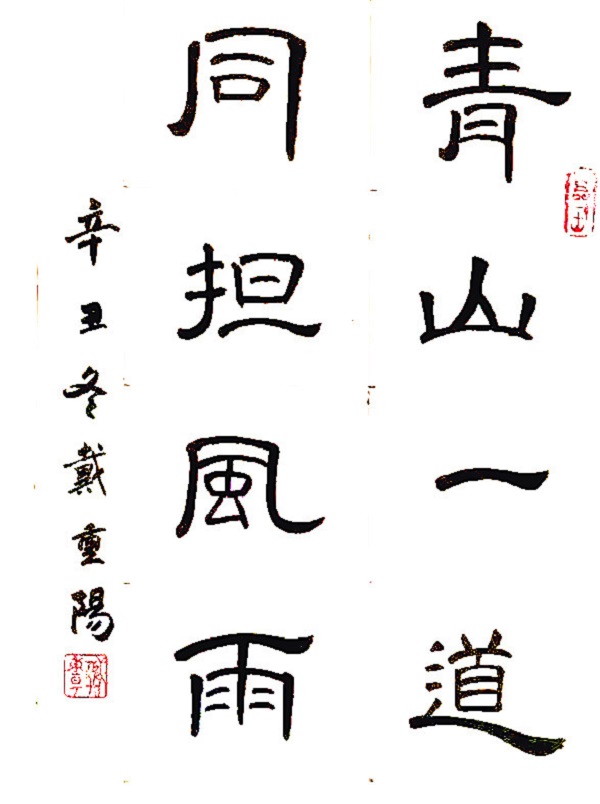 青山一道
同担風雨
辛丑冬戴重陽